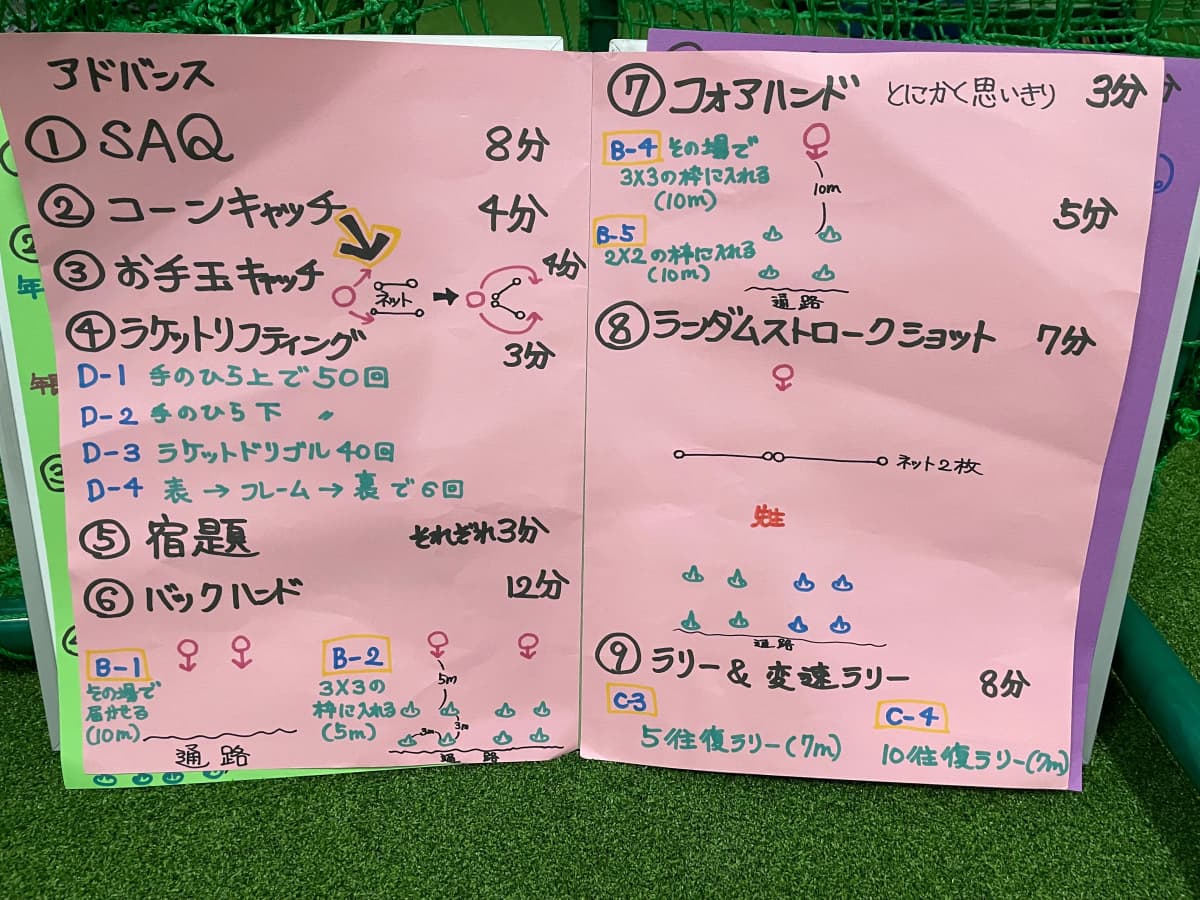 アドバンス
① SAQ 8分
② コーンキャッチ 4分
③ お手玉キャッチ 4分
ネット
④ ラケットリフティング 3分
D-1 手のひら上で50回
D-2 手のひら下 〃
D-3 ラケットドリブル40回
D-4 表→フレーム→裏で6回
⑤ 宿題 それぞれ3分
⑥ バックハンド 12分
B-1
その場で
届かせる
(10m)
通路
B-2
3×3の
枠に入れる
(5m)
5m
3m
3m
通路
⑦ フォアハンド とにかく思いきり 3分
B-4 その場で
3×3の枠に入れる
(10m)
10m
5分
B-5
2×2の枠に入れる
(10m)
通路
⑧ ランダムストロークショット 7分
ネット2枚
先生
通路
⑨ ラリー&変速ラリー 8分
C-3
5往復ラリー(7m)
C-4
10往復ラリー(7m)